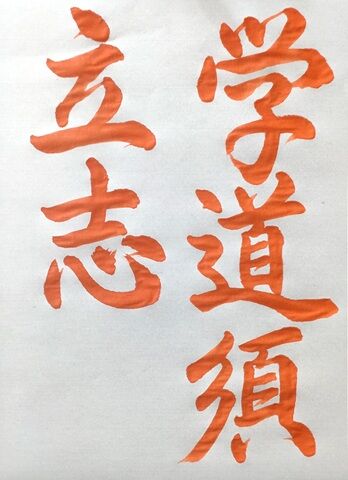 学道須
立志